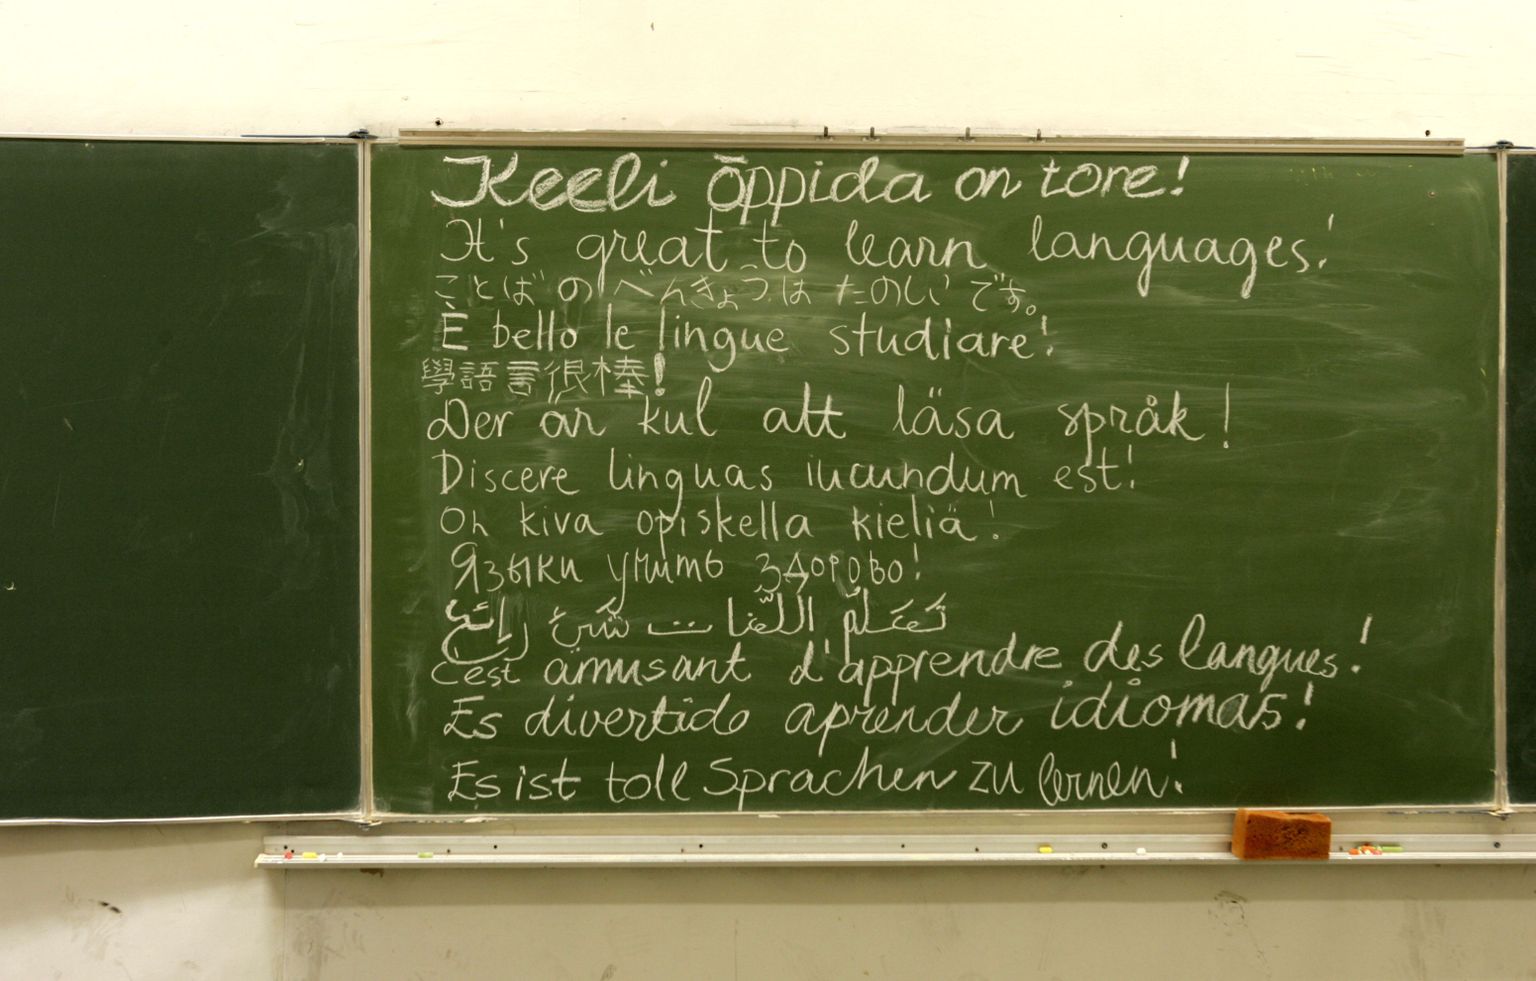 Keeli õppida on tore!
It's great to learn languages!
ことばのべんきょうは たのしいです。
È bello le lingue studiare!
學語言很棒!
Der är kul att läsa språk!
Discere linguas iucundum est!
On kiva opiskella kieliä!
Языки учить здорово!
تَعَلُّم اللُّغات شَيئ رائِع
C'est amusant d'apprendre des langues!
Es divertido aprender idiomas!
Es ist toll Sprachen zu lernen!